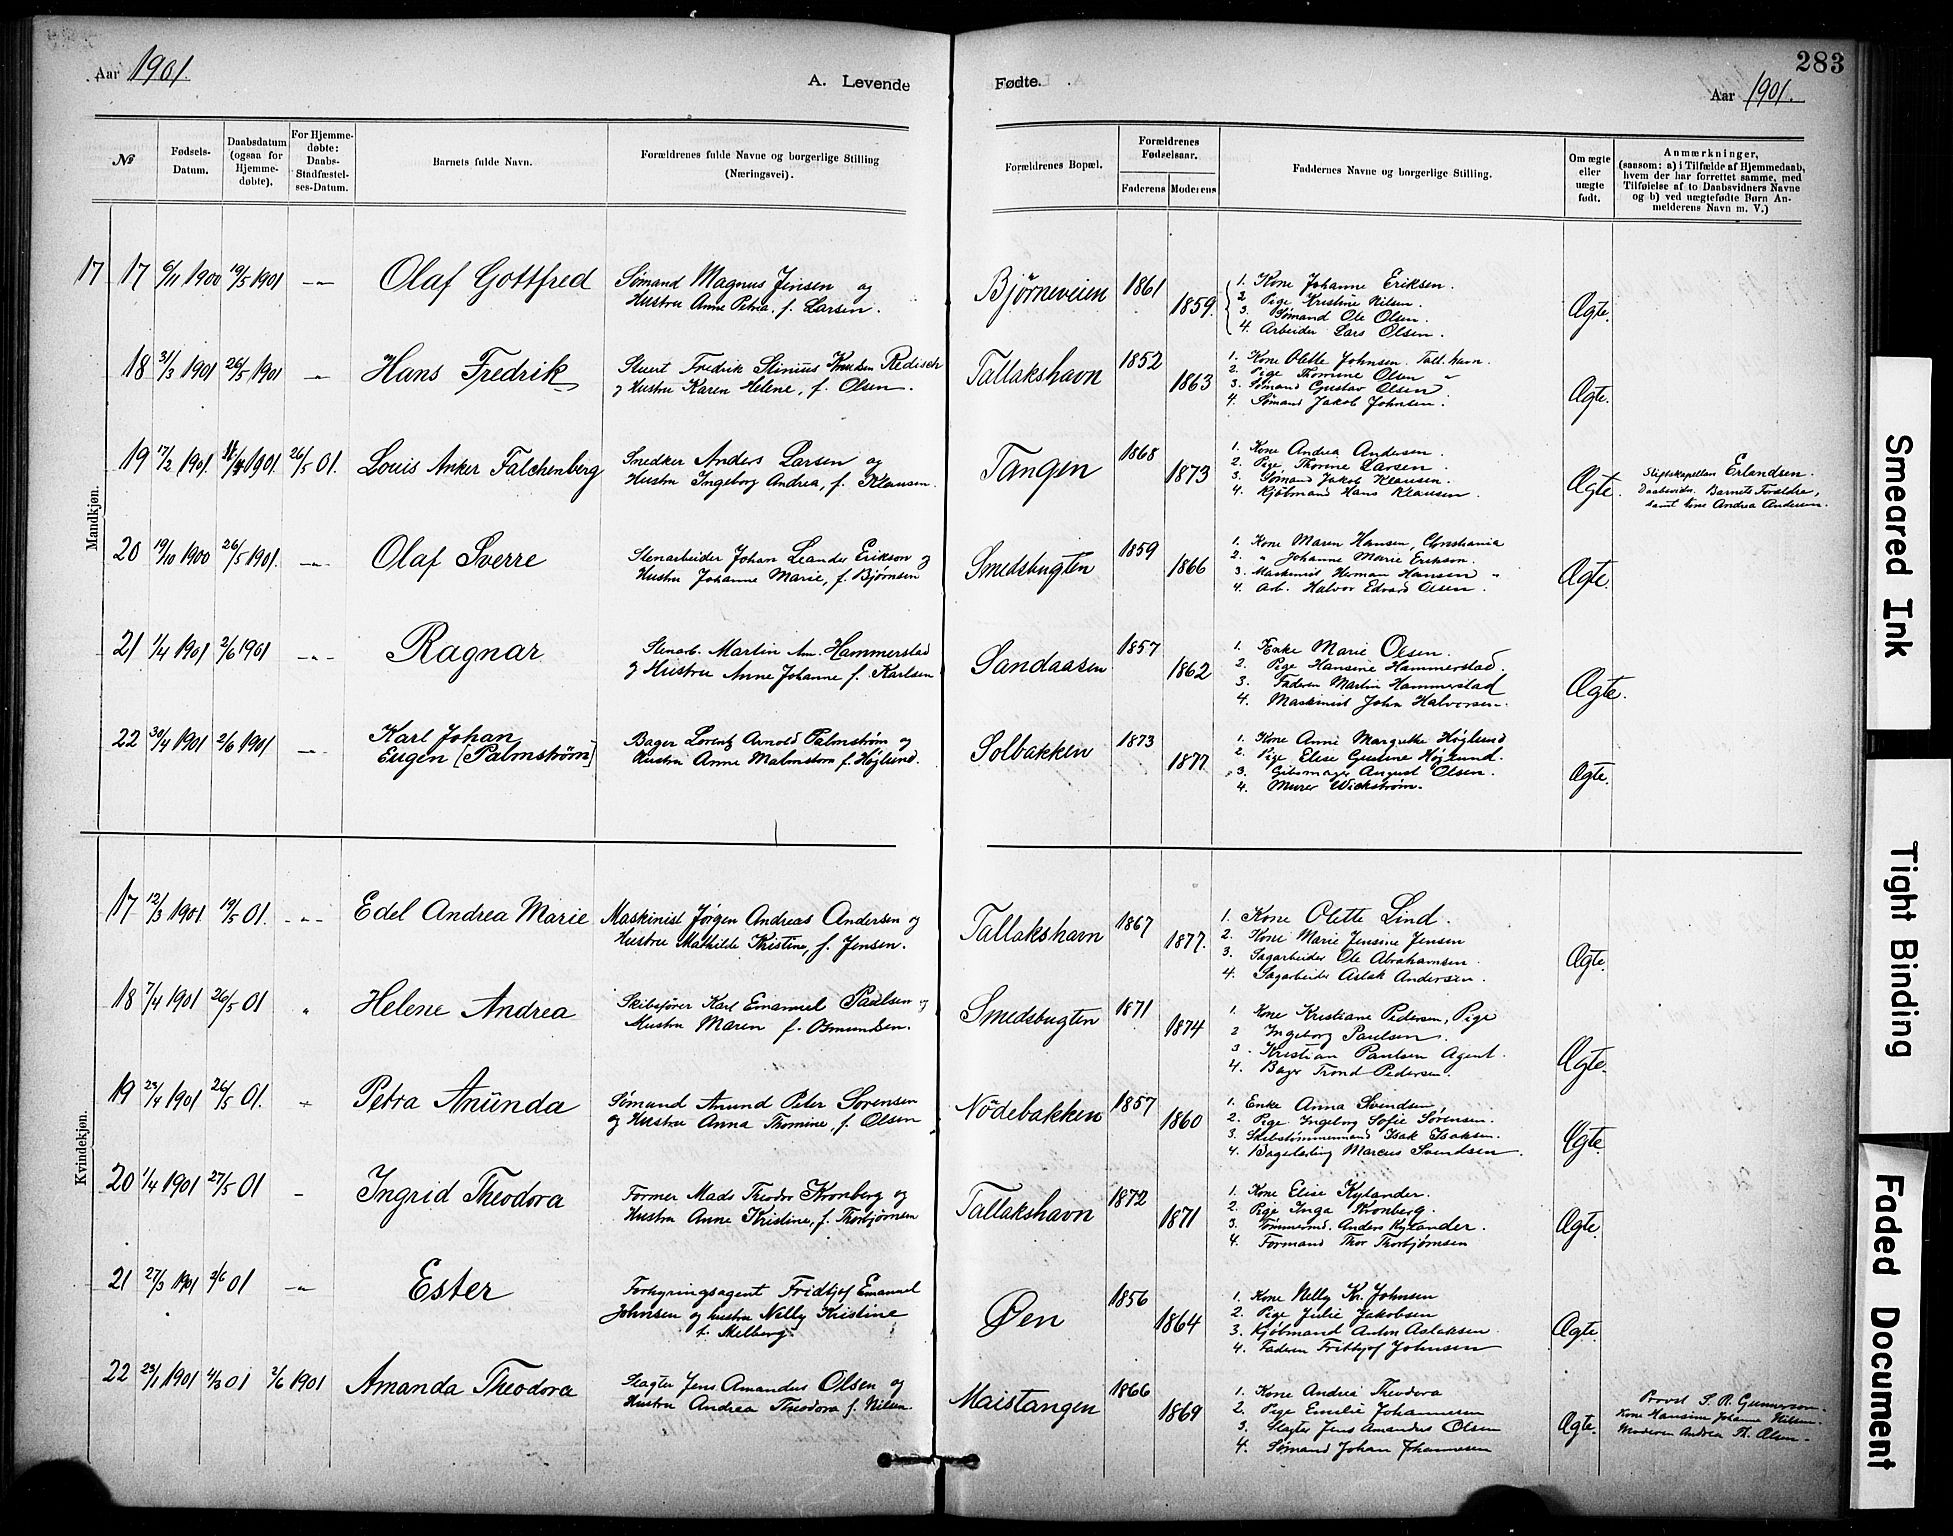 283
Aar 1901.
A. Levende
Fødte.
Aar 1901.
№
Fødsels-Datum.
Daabsdatum (ogsaa for Hjemme-døbte).
For Hjemme-døbte: Daabs-Stadfæstel-ses-Datum.
Barnets fulde Navn.
Forældrenes fulde Navne og borgerlige Stilling (Næringsvei).
Forældrenes Bopæl.
Forældrenes Fødselsaar.
Faderens
Moderens
Faddernes Navne og borgerlige Stilling.
Om ægte eller uægte født.
Anmærkninger, (saasom: a) i Tilfælde af Hjemmedaab, hvem der har forrettet samme, med Tilføielse af to Daabsvidners Navne og b) ved uægtefødte Børn An-melderens Navn m. V.)
Mandkjøn.
17 17 6/11 1900 19/5 1901 -"- Olaf Gottfred
Sømand Magnus Jensen og
Hustru Anne Petrea, f. Larsen.
Bjørneveien 1861 1859.
1. Kone Johanne Eriksen.
2. Pige Kristine Nilsen.
3. Sømand Ole Olsen.
4. Arbeider Lars Olsen.
Ægte.
18 31/3 1901 26/5 1901 -"- Hans Fredrik
Stuert Fredrik Stinius Knudsen Redisch
og Hustru Karen Helene, f. Olsen.
Tallakshavn 1852 1863
1. Kone Olette Johnsen. Tall.havn.
2. Pige Thomine Olsen "
3. Sømand Gustav Olsen
4. Sømand Jakob Johnsen.
Ægte.
19 17/2 1901. 1901. 26/5 01. Louis Anker Falchenberg
Snedker Anders Larsen og
Hustru Ingeborg Andrea, f. Klausen.
Tangen 1868 1873
1. Kone Andrea Andersen.
2. Pige Thorine Larsen.
3. Sømand Jakob Klausen.
4. Kjøbmand Hans Klausen.
Ægte.
Stiftskapellan Erlandsen.
Daabsvidn. Barnets Forældre,
samt kone Andrea Andersen.
20 19/10 1900 26/5 1901. -"- Olaf Sverre
Stenarbeider Johan Leander Erikson og
Hustru Johanne Marie, f. Bjørnsen
Smedsbugten 1859 1866
1. Kone Maren Hansen, Christiania
2. " Johanne Marie Erikson.
3. Maskinist Herman Hansen "
4. Arb. Halvor Edvard Olsen.
Ægte.
21 1/4 1901 2/6 1901 -"- Ragnar
Stenarb. Martin Am. Hammerstad
og Hustru Anne Johanne f. Karlsen
Sandaasen 1857 1862
1. Enke Marie Olsen.
2. Pige Hansine Hammerstad.
3. Faderen Martin Hammerstad
4. Maskinist John Halvorsen.
Ægte.
22 30/4 1901 2/6 1901 -"- Karl Johan
Eugen [Palmstrøm]
Bager Lorentz Arnold Palmstrøm og
Hustru Anne Malmstrøm f. Höglund.
Solbakken 1873 1877
1. Kone Anne Margrethe Höglund
2. Pige Elise Gustine Höglund.
3. Gibsmager August Olsen.
4. Murer Wickstrøm.
Ægte.
Kvindekjøn.
17 12/3 1901 19/5 01. -"- Edel Andrea Marie
Maskinist Jørgen Andreas Andersen og
Hustru Mathilde Kristine, f. Jensen.
Tallakshavn 1867 1877.
1. Kone Olette Lind.
2. Kone Marie Jensine Jensen
3. Sagarbeider Ole Abrahamsen.
4. Sagarbeider Aslak Andersen.
Ægte.
18 7/4 1901 26/5 01 " Helene Andrea
Skibsfører Karl Emanuel Paulsen og
Hustru Maren f. Osmundsen.
Smedsbugten 1871 1874
1. Kone Kristiane Pedersen, Pige
2 Ingeborg Paulsen.
3. Kristian Paulsen Agent.
4. Bager Trond Pedersen.
Ægte.
19 23/4 1901 26/5 01. Petra Anünda
Sømand Anund Peter Sørensen
og Hustru Anna Thomine, f. Olsen
Nödebakken 1857 1860
1. Enke Anna Svendsen
2. Pige Ingeborg Sofie Sørensen.
3. Skibstømmermand Isak Isaksen.
4. Bagerlærling Marcus Svendsen.
Ægte.
20 1/4 1901 27/5 01 - Ingrid Theodora
Former Mads Theodor Kronberg og
Hustru Anne Kristine, f. Thorbjørnsen
Tallakshavn 1872 1871
1. Kone Elise Kylander.
2. Pige Inga Kronberg.
3. Tømmermd. Anders Kylander.
4. Formand Thor Thorbjørnsen
Ægte.
21 27/3 1901 2/6 01 -"- Ester
Forhyringsagent Fridtjof Emanuel
Johnsen og hustru Nelly Kristine
f. Melberg.
Øen 1856 1864
1. Kone Nelly Kr. Johnsen
2. Pige Julie Jakobsen
3. Kjøbmand Anton Aslaksen.
4. Faderen Fridtjof Johnsen
Ægte.
22 23/1 1901 4/3 01 2/6 1901 Amanda Theodora
Slagter Jens Amandus Olsen og
Hustru Andrea Theodora f. Nilsen.
Maistangen 1866 1869
1. Kone Andrea Theodora
2. Pige Emilie Johannesen
3. Slagter Jens Amandus Olsen
4. Sømand Johan Johannesen
Ægte.
Provst S. R. Gunnerson.
Kone Hansine Johanne Nilsen.
Moderen Andrea Th. Olsen.
Smeared Ink
Tight Binding
Faded Document